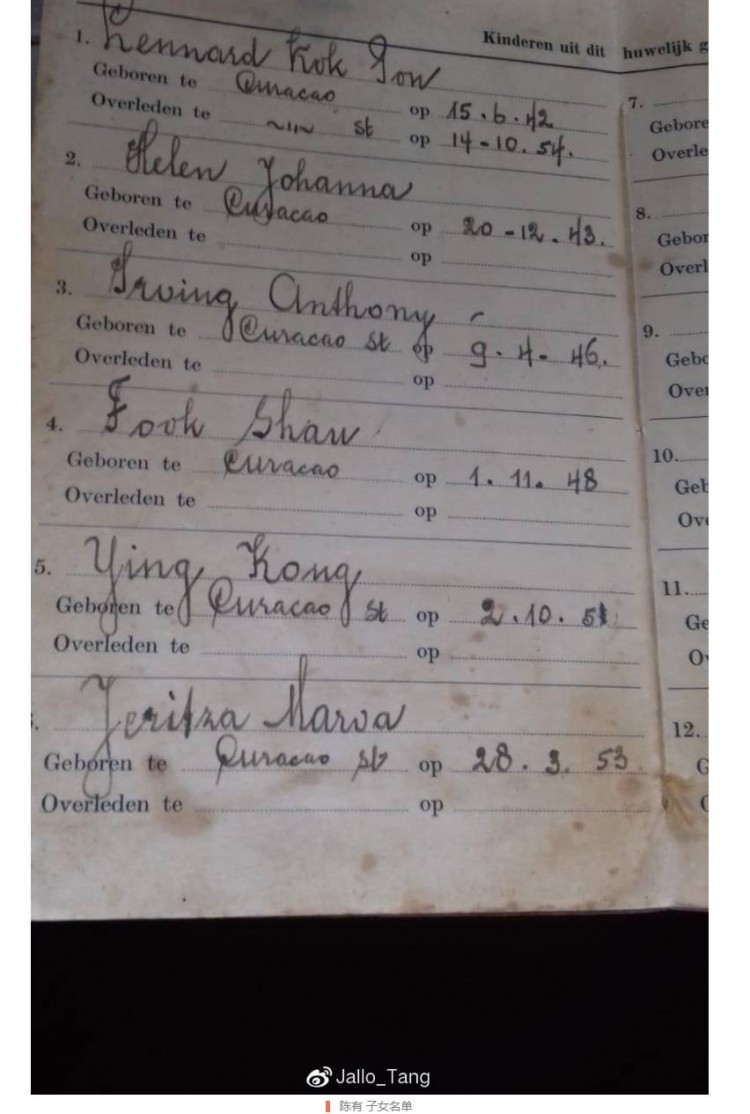 Kinderen uit dit huwelijk g
1. Lennard Kok Son
Geboren te Curacao op 15.6.42
Overleden te ~"~ st op 14-10.54.
2. Helen Johanna
Geboren te Curacao op 20-12.43.
Overleden te op
3. Irving Anthony
Geboren te Curacao st op 9.4.46.
Overleden te op
4. Fook Shau
Geboren te Curacao op 1.11.48
Overleden te op
5. Ying Kong
Geboren te Curacao st op 2.10.51
Overleden te op
Jeritza Marva
Geboren te Curacao st op 28.3.53
Overleden te op
7.
Gebore
Overle
8.
Gebor
Overl
9.
Gebo
Over
10.
Geb
Ov
11.
Ge
O
12.
G
Jallo_Tang
陈有 子女名单